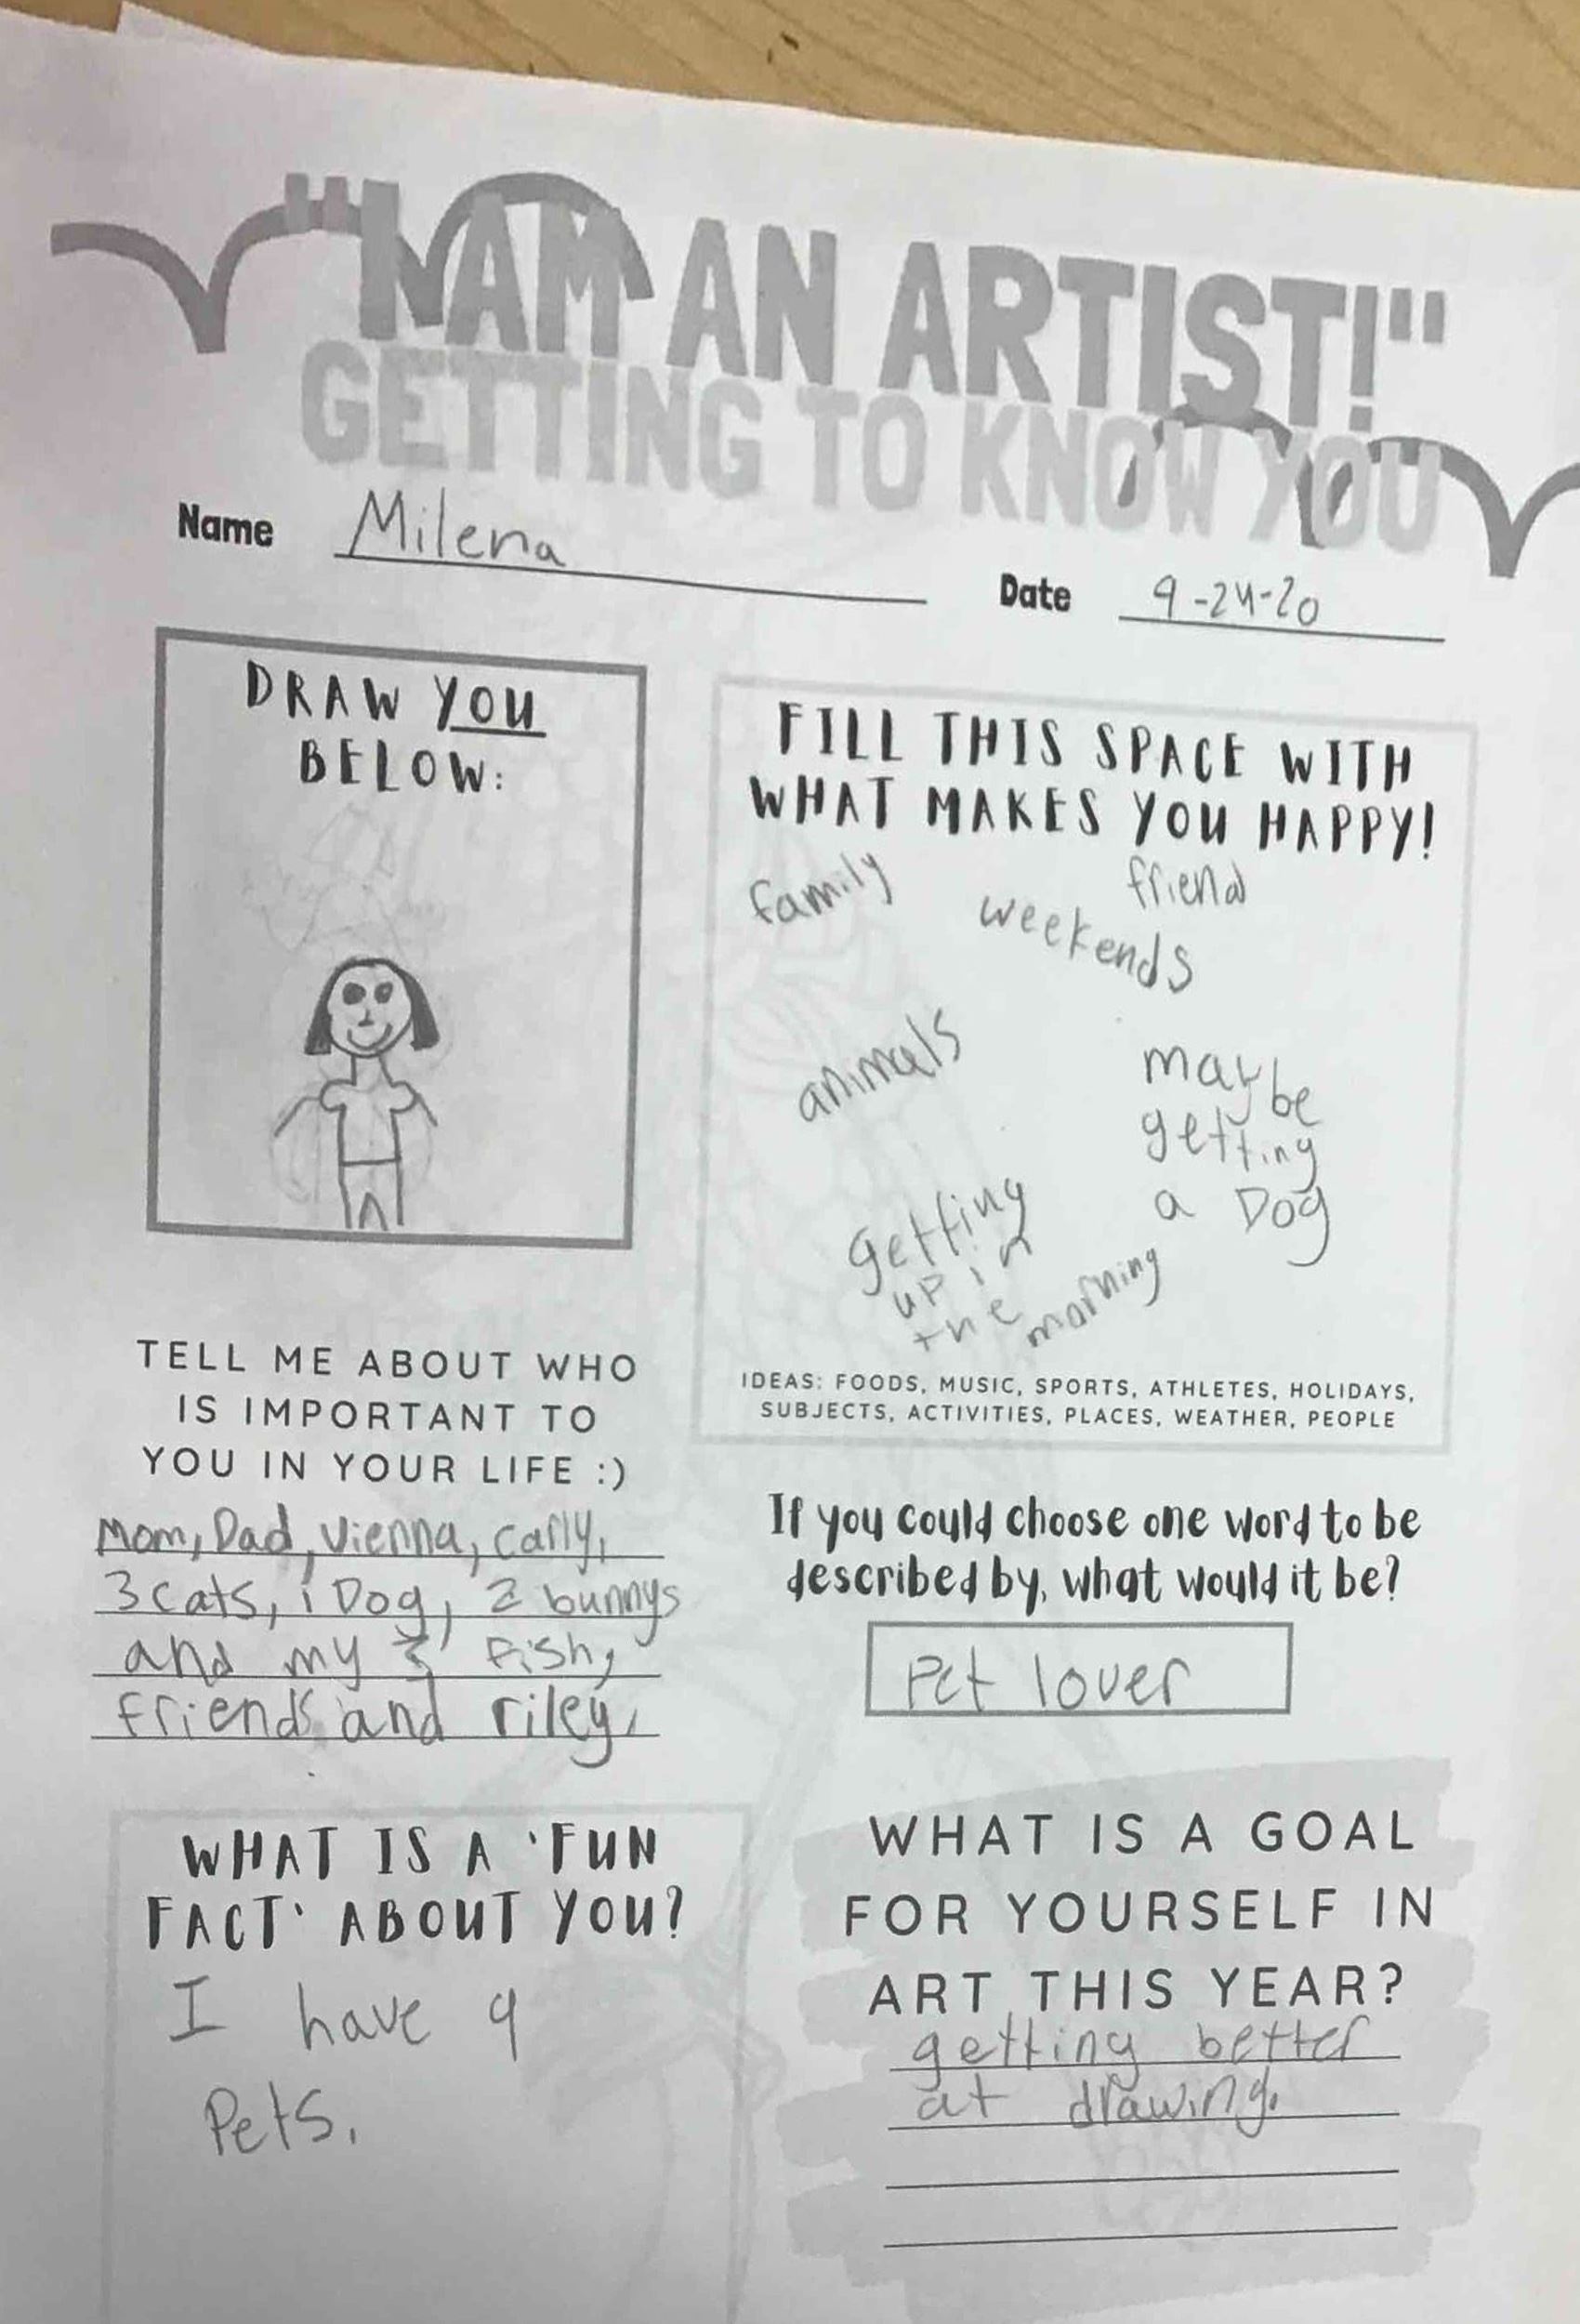 "I AM AN ARTIST!"
GETTING TO KNOW YOU
Name Milena
Date 9-24-20
DRAW YOU
BELOW:
FILL THIS SPACE WITH
WHAT MAKES YOU HAPPY!
family
friend
weekends
animals
maybe
getting
a Dog
getting
up in
the morning
IDEAS: FOODS, MUSIC, SPORTS, ATHLETES, HOLIDAYS,
SUBJECTS, ACTIVITIES, PLACES, WEATHER, PEOPLE
TELL ME ABOUT WHO
IS IMPORTANT TO
YOU IN YOUR LIFE :)
Mom, Dad, Vienna, carly,
3 cats, 1 Dog, 2 bunnys
and my fish,
friends and riley.
If you could choose one word to be
described by, what would it be?
Pet lover
WHAT IS A 'FUN
FACT' ABOUT YOU?
I have 9
Pets.
WHAT IS A GOAL
FOR YOURSELF IN
ART THIS YEAR?
getting better
at drawing.